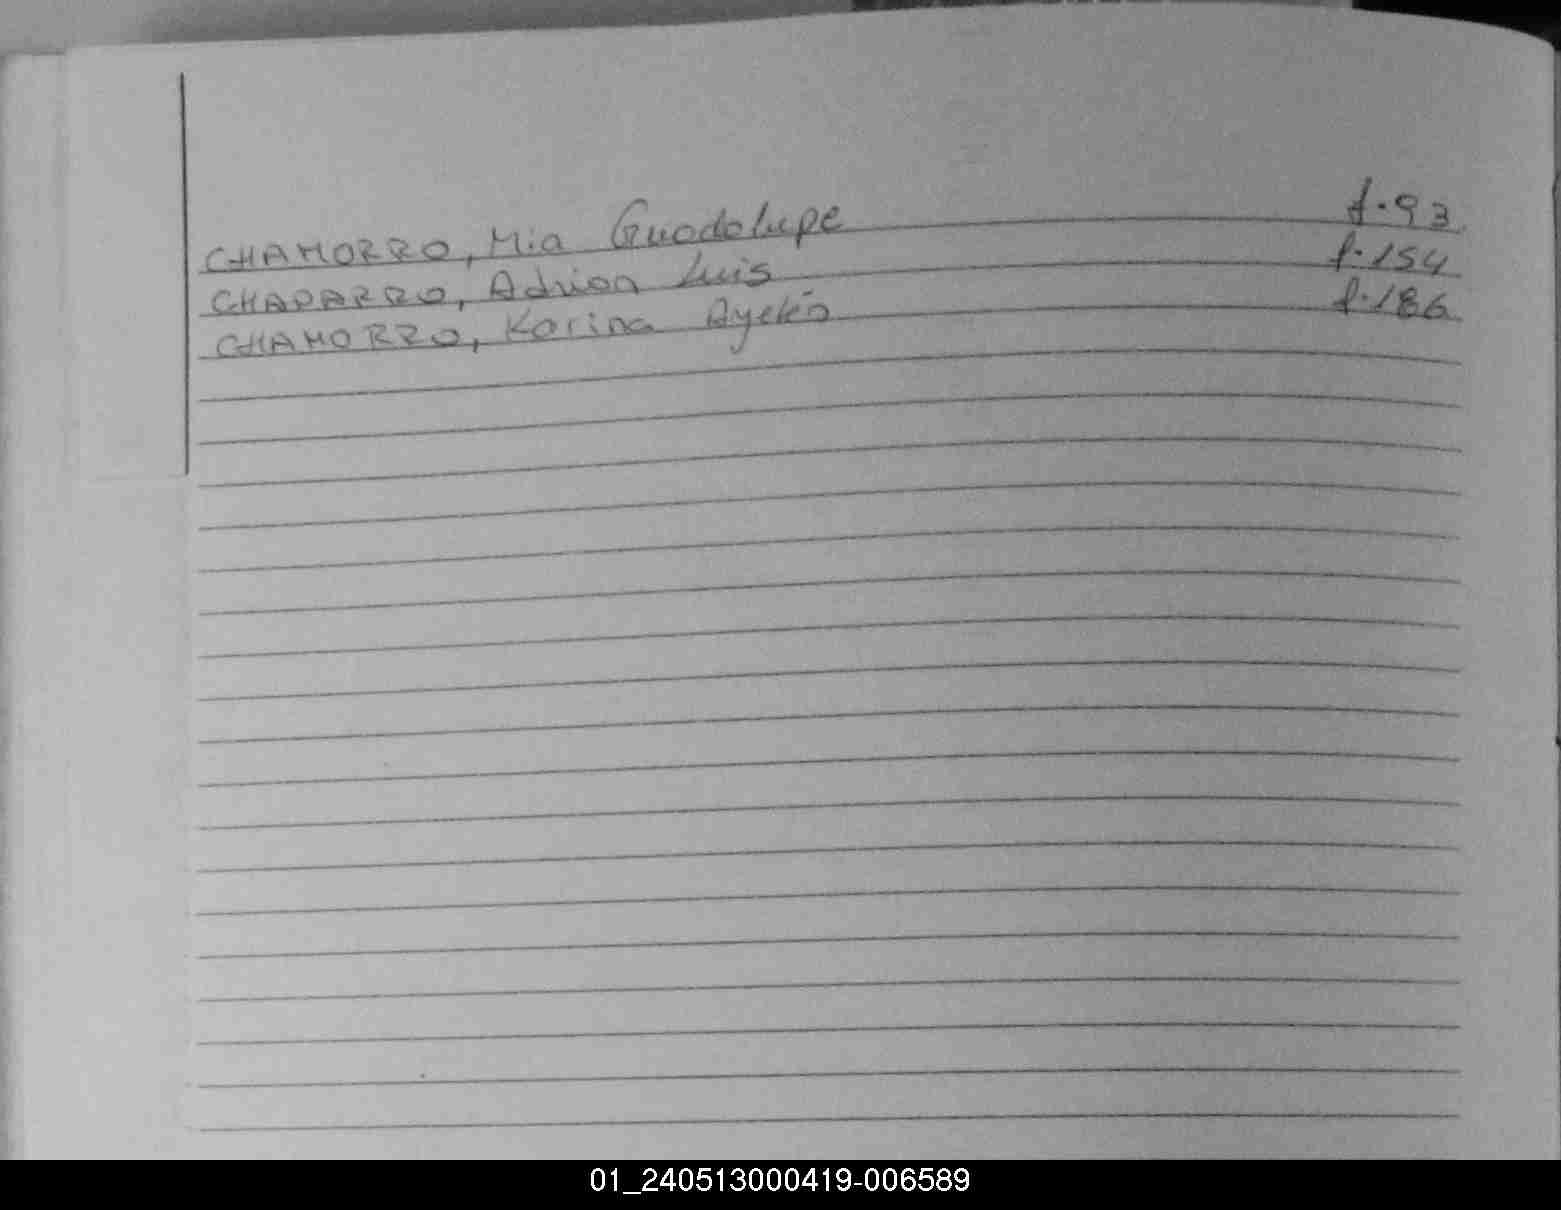 CHAMORRO, Mia Guadalupe f.93
CHAPARRO, Adrian Luis f.154
CHAMORRO, Karina Ayelén f.186
01_240513000419-006589